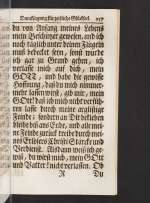 Danckſagung für zeitliche Glückſel. 257
du von Anfang meines Lebens
mein Beſchützer geweſen, und ich
noch täglich unter deinen Flügeln
muß bedecket ſeyn, ſonſt würde
ich gar zu Grund gehen, ich
verlaſſe mich auf dich, mein
GOTT, und habe die gewiſſe
Hoffnung, daß du mich nimmer-
mehr laſſen wirſt, gib mir, mein
Gott daß ich mich nicht verfüh-
ren laſſe durch meine argliſtige
Feinde, ſondern an Dir beſtändig
bleibe biß ans Ende, und alle mei-
ne Feinde zurück treibe durch mei-
nes Erlöſers Chriſti Stärcke und
Verdienſt. Alsdann weiß ich ge-
wiß, du wirſt mich, mein GOtt
und Vatter! nicht verlaſſen. Ob
R Du